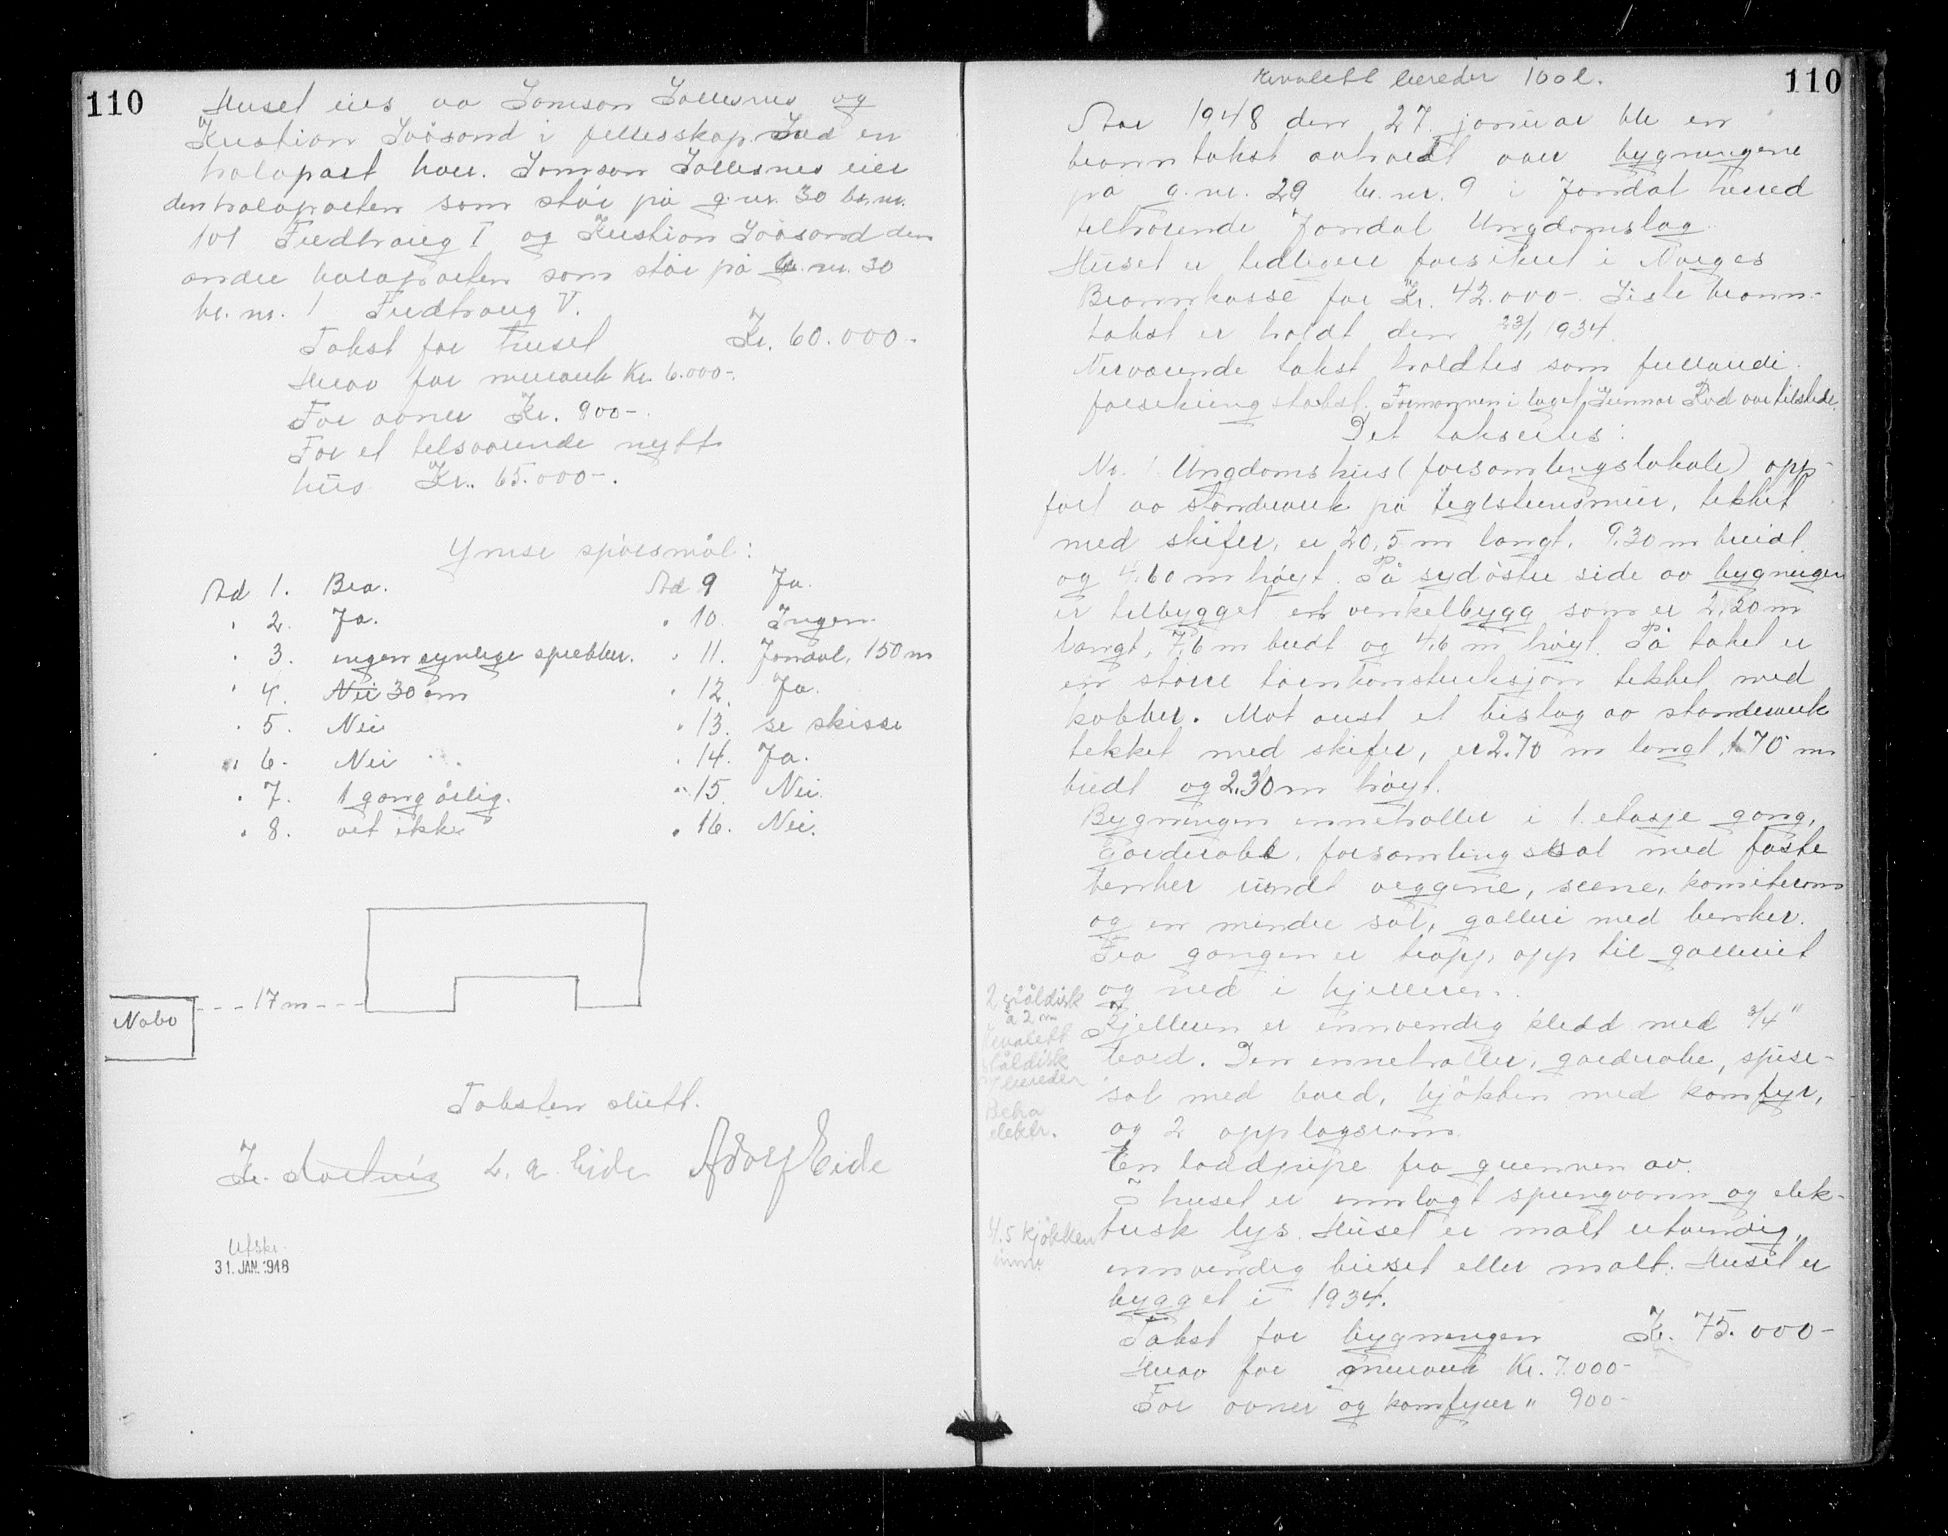 110
Huset eies av Samson Sollesnes og
Kristian Soösand i fellesskap. Med en
halvpart hver. Samson Sollesnes eier
den halvparten som står på g.nr. 30 br.nr.
101 Fredhaug I og Kristian Soösand den
andre halvparten som står på g.nr. 30
br.nr. 1 Fredhaug V.
Takst for huset Kr. 60.000-.
Herav for murverk Kr. 6.000-.
For ovner Kr. 900-.
For et tilsvarende nytt
hus Kr. 65.000-.
Ymse spörsmål:
Ad 1. Bra. Ad 9 Ja.
" 2. Ja. " 10. Ingen.
" 3. ingen synlige sprekker. " 11. Jondal, 150 m
" 4. Nei 30 cm " 12. Ja.
" 5. Nei " 13. se skisse
" 6. Nei " 14. Ja.
" 7. 1 gang årlig. " 15. Nei.
" 8. vet ikke " 16. Nei.
Nabo
17 m
Taksten slutt.
L. A. Eide Adolf Eide
Utskr.
31. JAN. 1948
110
bereder 100 l.
Aar 1948 den 27. januar ble en
branntakst avholdt over bygningene
på g.nr. 29 br.nr. 9 i Jondal herred
tilhörende Jondal Ungdomslag.
Huset er tidligere forsikret i Norges
Brannkasse for Kr. 42.000-. Siste brann-
takst er holdt den 23/1 1934.
Nerværende takst holdtes som fullverdi
forsikringstakst. Formannen i laget Gunnar var tilstede.
Det takseres:
No. 1 Ungdomshus (forsamlingslokale) opp-
fört av standverk på teglsteinsmur, tekket
med skifer, er 20,5 m langt, 9,30 m breidt
og 4,60 m höyt. På sydöstre side av bygningen
er tilbygget et vinkelbygg som er 2,20 m
langt, 7,6 m bredt og 4,6 m höyt. På taket er
en större tårnkonstruksjon tekket med
kobber. Mot aust et bislag av standverk
tekket med skifer, er 2.70 m langt, 1.70 m
bredt og 2,30 m höyt.
Bygningen inneholder i 1. etasje gang,
garderobe, forsamlingssal med faste
benker rundt veggene, scene, komiterom
og en mindre sal, galleri med benker.
Fra gangen er trapp, opp til galleriet
og ned i kjelleren.
2 ståldisk
a 2 m
ståldisk
bereder
Beha
elektr.
Kjelleren er innvendig kledd med 3/4"
bord. Den inneholder, garderobe, spise-
sal med bord, kjökken med komfyr,
og 2 opplagsrom.
En loddpipe fra grunnen av.
I huset er innlagt springvann og elek-
trisk lys. Huset er malt utvendig,
innvendig beiset eller malt. Huset er
bygget i 1934.
4.5 kjökken
Takst for bygningen Kr. 75.000-
Herav for murverk Kr. 7.000-
For ovner og komfyrer " 900-